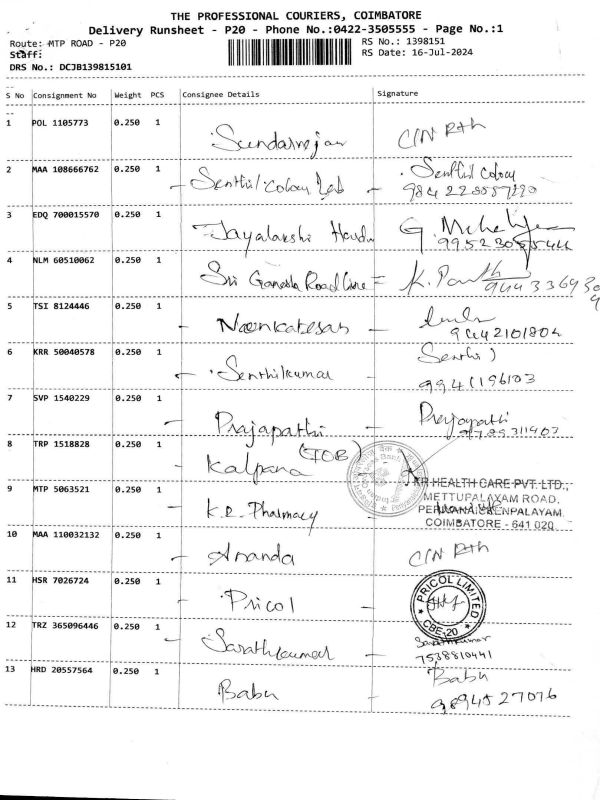 THE PROFESSIONAL COURIERS, COIMBATORE
Delivery Runsheet - P20 - Phone No.:0422-3505555 - Page No.:1
Route: MTP ROAD - P20
RS No.: 1398151
Staff:
RS Date: 16-Jul-2024
DRS No.: DCJB139815101
S No Consignment No Weight PCS Consignee Details Signature
1 POL 1105773 0.250 1 Sundarrajan
2 MAA 108666762 0.250 1 Senthil Colour Lab Senthil Colour
3 EDQ 700015570 0.250 1 Jayalakshi
4 NLM 60510062 0.250 1 Sri Ganesh Road Line
5 TSI 8124446 0.250 1 Naenkatesan
9442101804
6 KRR 50040578 0.250 1 Senthilkumar Senthil
9941196103
7 SVP 1540229 0.250 1 Prajapathi Prajapathi
9789311403
8 TRP 1518828 0.250 1 Kalpana (IOB)
9 MTP 5063521 0.250 1 K.R. Pharmacy
KR HEALTH CARE PVT. LTD.,
METTUPALAYAM ROAD,
PERIYANAICKENPALAYAM
COIMBATORE - 641 020
10 MAA 110032132 0.250 1 Ananda
11 HSR 7026724 0.250 1 Pricol
PRICOL LIMITED
CBE-20
12 TRZ 365096446 0.250 1 Sarathkumar Sarathkumar
7538810441
13 HRD 20557564 0.250 1 Babu Babu
9894527076